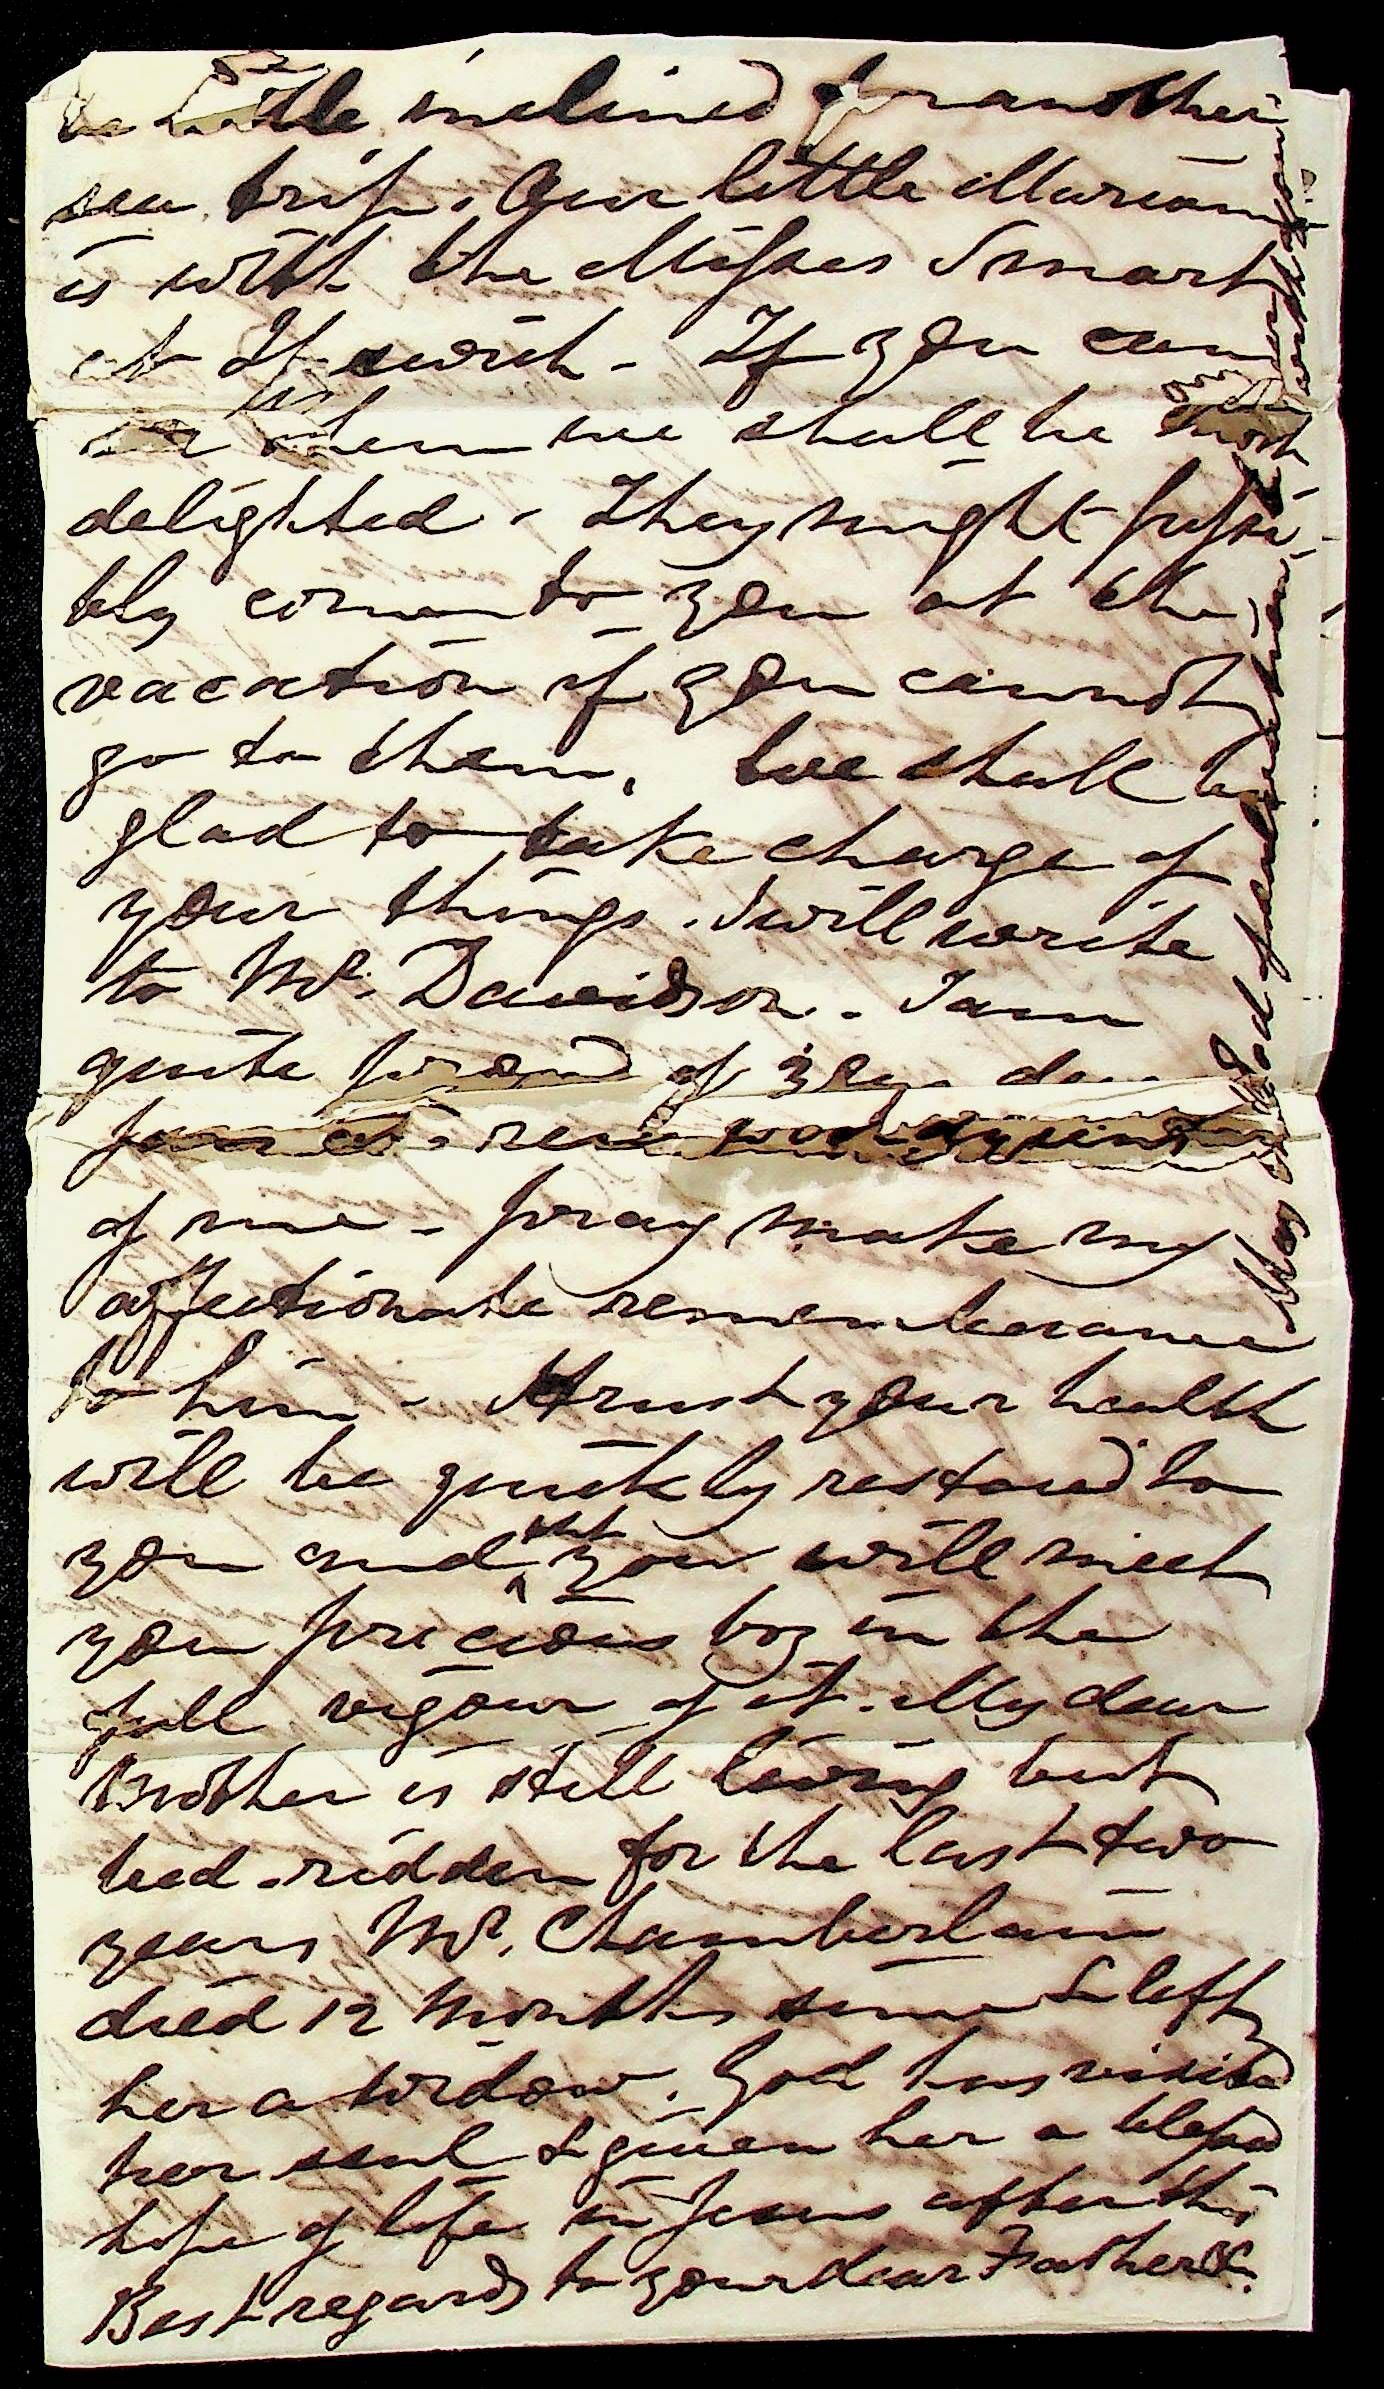 be little inclined for another
sea trip. Our little Marian
is with the Misses Smart
at Ipswich - If you can
see them we shall be most
delighted. They might possi-
bly come to you at the
vacation if you cannot
go to them. We shall be
glad to take charge of
your things. I will write
to Mr. Davidson. I am
quite proud of your dear
of me - pray make my
affectionate rememberance
to him - I trust your health
will be quickly restored to
you and that you will meet
you precious boy in the
full vigour of it. My dear
Brother is still living but
bed-ridden for the last two
years, Mr. Chamberlain
died 12 Months since & left
her a widow. God has visited
her soul & given her a blessed
hope of life in Jesus after this
Best regards to your dear Father &c.
May God